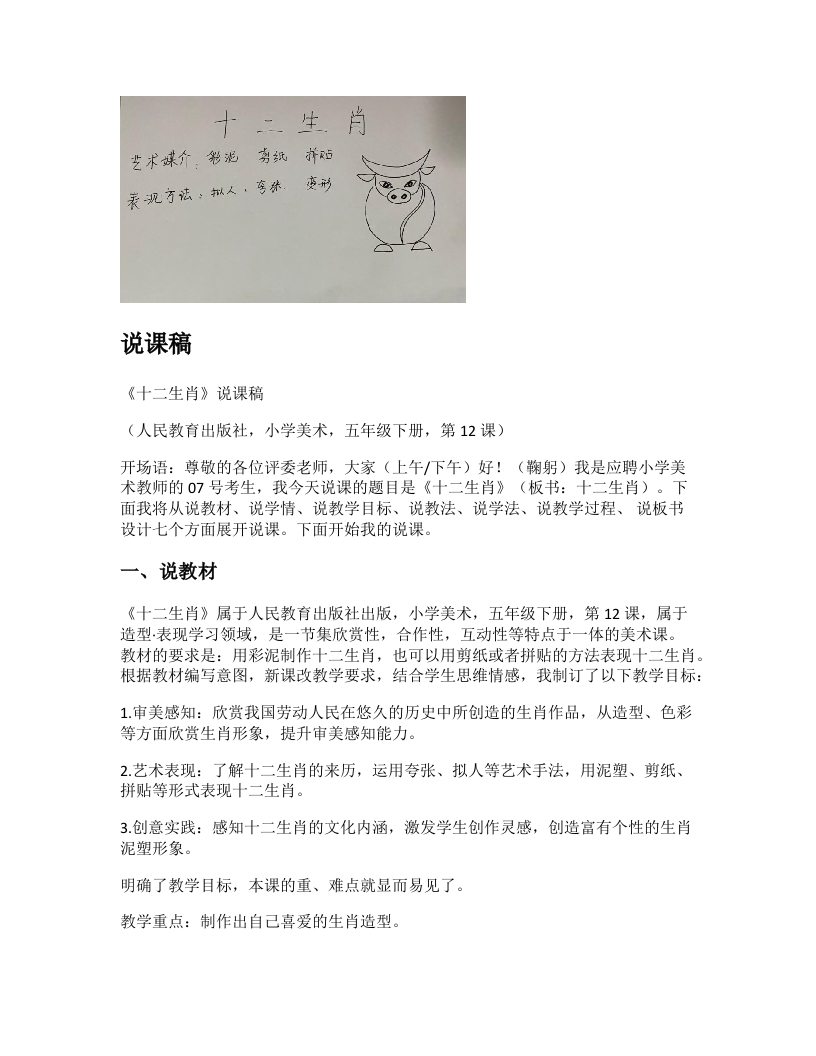 十二生肖
艺术媒介：彩泥 剪纸 拼贴
表现方法：拟人、夸张. 变形
说课稿
《十二生肖》说课稿
（人民教育出版社，小学美术，五年级下册，第 12 课）
开场语：尊敬的各位评委老师，大家（上午/下午）好！（鞠躬）我是应聘小学美
术教师的 07 号考生，我今天说课的题目是《十二生肖》（板书：十二生肖）。下
面我将从说教材、说学情、说教学目标、说教法、说学法、说教学过程、 说板书
设计七个方面展开说课。下面开始我的说课。
一、说教材
《十二生肖》属于人民教育出版社出版，小学美术，五年级下册，第 12 课，属于
造型·表现学习领域，是一节集欣赏性，合作性，互动性等特点于一体的美术课。
教材的要求是：用彩泥制作十二生肖，也可以用剪纸或者拼贴的方法表现十二生肖。
根据教材编写意图，新课改教学要求，结合学生思维情感，我制订了以下教学目标：
1.审美感知：欣赏我国劳动人民在悠久的历史中所创造的生肖作品，从造型、色彩
等方面欣赏生肖形象，提升审美感知能力。
2.艺术表现：了解十二生肖的来历，运用夸张、拟人等艺术手法，用泥塑、剪纸、
拼贴等形式表现十二生肖。
3.创意实践：感知十二生肖的文化内涵，激发学生创作灵感，创造富有个性的生肖
泥塑形象。
明确了教学目标，本课的重、难点就显而易见了。
教学重点：制作出自己喜爱的生肖造型。